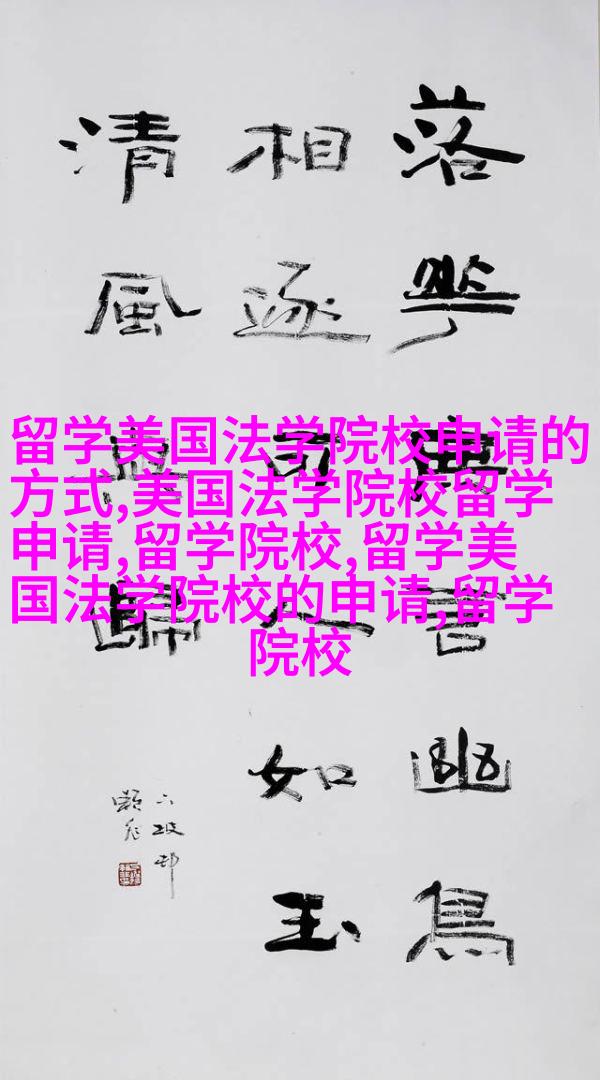 落華無言幽鳥
相逐可人如玉
清風與歸
留学美国法学院校申请的
方式,美国法学院校留学
申请,留学院校,留学美
国法学院校的申请,留学
院校